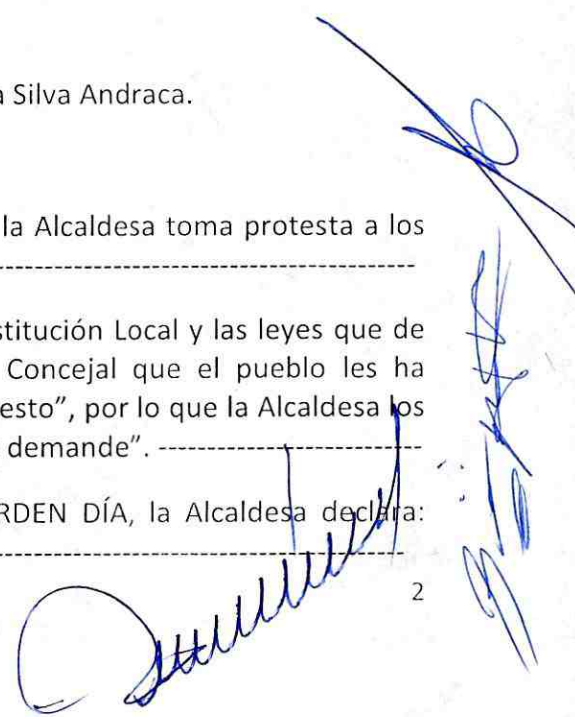 a Silva Andraca.
la Alcaldesa toma protesta a los
----------------------------------------
stitución Local y las leyes que de
Concejal que el pueblo les ha
esto”, por lo que la Alcaldesa los
demande”. -------------------------
RDEN DÍA, la Alcaldesa declara:
----------------------------------------
2